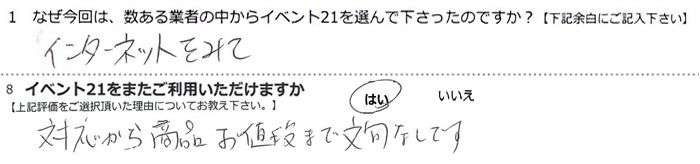 1 なぜ今回は、数ある業者の中からイベント21を選んで下さったのですか？【下記余白にご記入下さい】
インターネットをみて
8 イベント21をまたご利用いただけますか はい いいえ
【上記評価をご選択頂いた理由についてお教え下さい。】
対応から商品お値段まで文句なしです